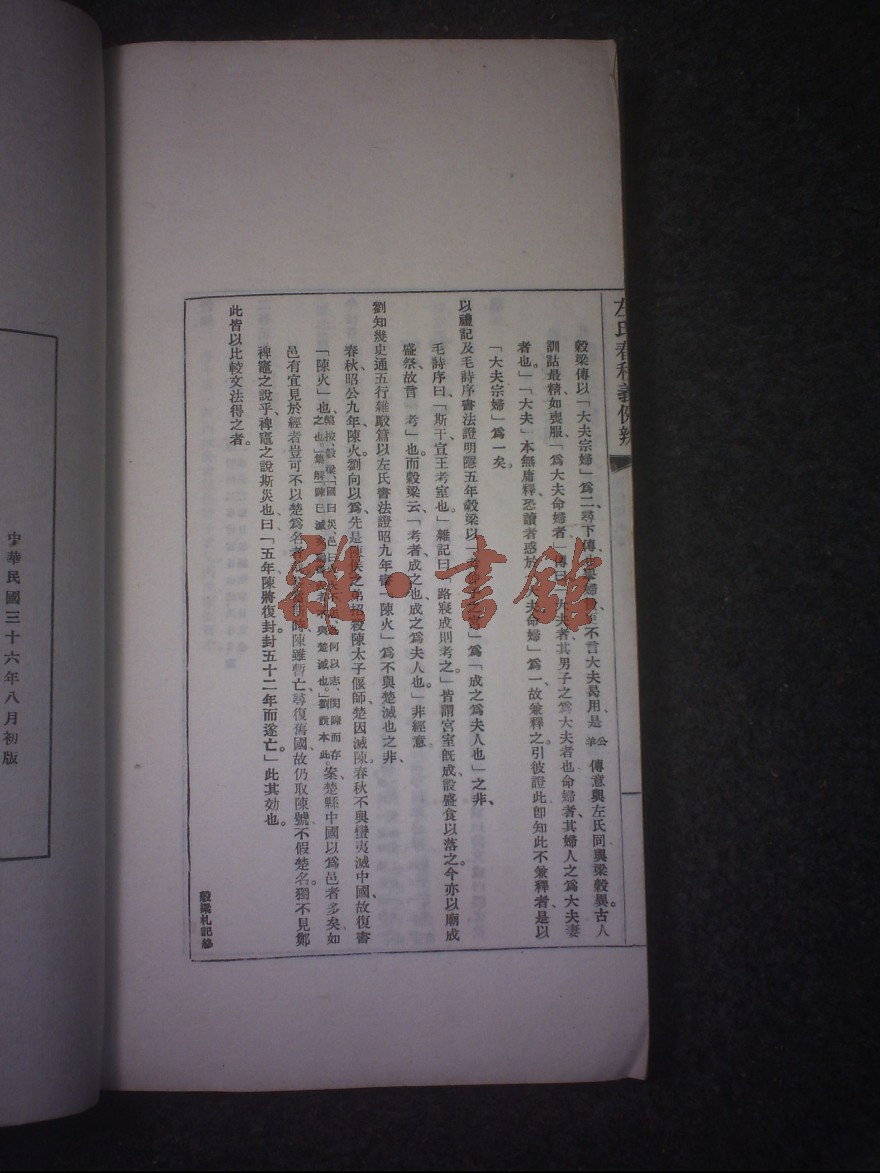 左氏春秋義例辨
穀梁傳以「大夫宗婦」爲二、尋下傳
不言大夫曷用是 公羊 傳意與左氏同與梁穀異。古人
訓詁最精如喪服「爲大夫命婦者」傳曰
大夫者其男子之爲大夫者也命婦者、其婦人之爲大夫妻
者也」「大夫」本無庸釋、恐讀者惑於
大夫命婦」爲一、故兼釋之。引彼證此卽知此不兼釋者、是以
「大夫宗婦」爲一矣。
以禮記及毛詩序書法證明隱五年穀梁以「考
宮」爲「成之爲夫人也」之非、
毛詩序曰、「斯干宣王考室也」雜記曰、「路寢成則考之」皆謂宮室旣成、設盛食以落之。今亦以廟成
盛祭、故言 考」也。而穀梁云、「考者、成之也、成之爲夫人也。」非經意。
劉知幾史通五行雜駁篇以左氏書法證昭九年書「陳火」爲不與楚滅也之非、
春秋昭公九年、陳火。劉向以爲、先是陳侯之弟招殺陳太子偃師、楚因滅陳。春秋不與蠻夷滅中國、故復書
「陳火」也。
案楚縣中國以爲邑者多矣、如
邑有宜見於經者、豈可不以楚爲名者
時陳雖暫亡、尋復舊國、故仍取陳號、不假楚名。獨不見鄭
裨竈之說乎、裨竈之說斯災也、曰、「五年陳將復封、封五十二年而遂亡。」此其効也。
此皆以比較文法得之者。
穀梁札記
中華民國三十六年八月初版
雜·書館